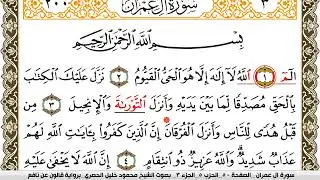 ٢٠٠ سُورَةُ آلِ عِمْرَانَ ٣
بِسْمِ اللَّهِ الرَّحْمَٰنِ الرَّحِيمِ
الٓمٓ ١ اللَّهُ لَا إِلَٰهَ إِلَّا هُوَ الْحَيُّ الْقَيُّومُ ٢ نَزَّلَ عَلَيْكَ الْكِتَٰبَ
بِالْحَقِّ مُصَدِّقًا لِّمَا بَيْنَ يَدَيْهِ وَأَنزَلَ التَّوْرَىٰةَ وَالْإِنجِيلَ ٣ مِن
قَبْلُ هُدًى لِّلنَّاسِ وَأَنزَلَ الْفُرْقَانَ إِنَّ الَّذِينَ كَفَرُوا بِـَٔايَٰتِ اللَّهِ لَهُمْ
عَذَابٌ شَدِيدٌ وَاللَّهُ عَزِيزٌ ذُو انتِقَامٍ ٤ إِنَّ اللَّهَ لَا يَخْفَىٰ عَلَيْهِ
سورة آل عمران - الصفحة ٥٠ - الحزب ٥ - الجزء ٣ - بصوت الشيخ محمود خليل الحصري - برواية قالون عن نافع